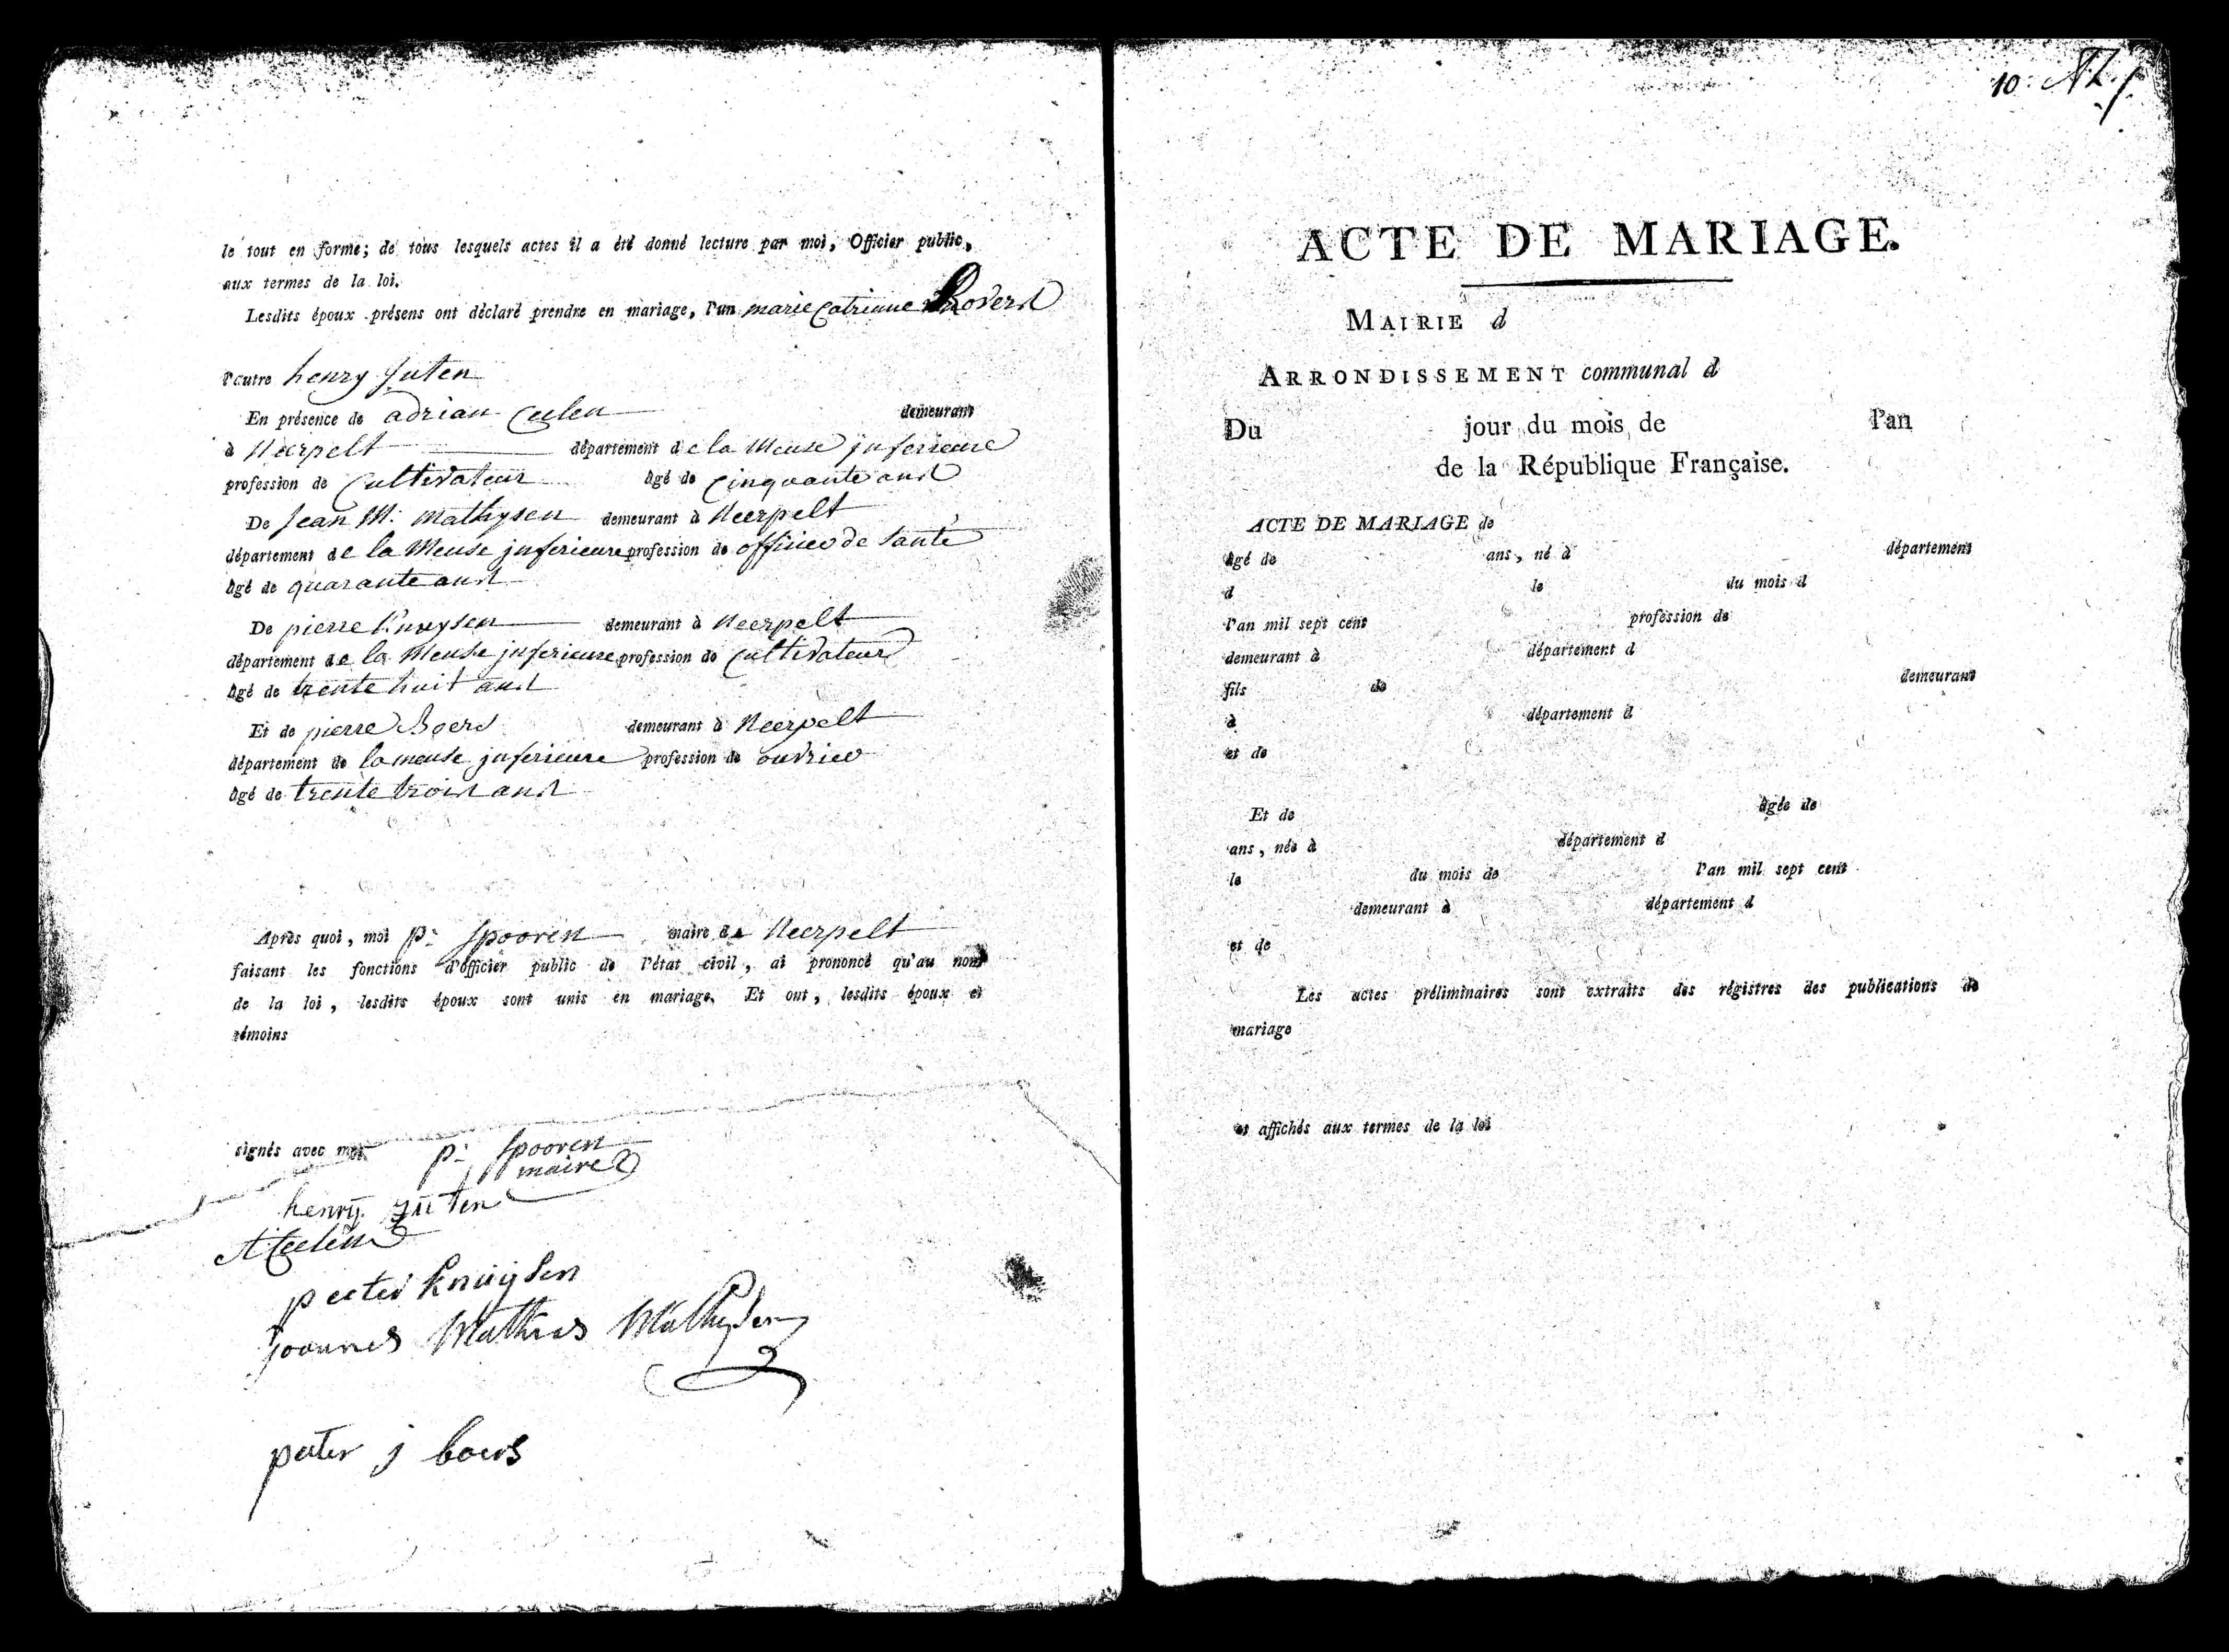 le tout en forme; de tous lesquels actes il a été donné lecture par moi, Officier public,
aux termes de la loi.
Lesdits époux présens ont déclaré prendre en mariage, l'un marie Catrinne
l'autre henry Juten
En présence de adrian Ceelen demeurant
à Neerpelt département de la Meuse inferieure
profession de Cultivateur âgé de Cinquante ans
De Jean M: Mathysen demeurant à Neerpelt
département de la Meuse inferieure profession de officier de Santé
âgé de quarante ans
De pierre Knuysen demeurant à Neerpelt
département de la Meuse inferieure profession de Cultivateur
âgé de trente huit ans
Et de pierre Boers demeurant à Neerpelt
département de la meuse inferieure profession de ouvrier
âgé de trente trois ans
Après quoi, moi p: Spooren maire de Neerpelt
faisant les fonctions d'officier public de l'état civil, ai prononcé qu'au nom
de la loi, lesdits époux sont unis en mariage. Et ont, lesdits époux et
témoins
signés avec moi p: Spooren
maire
henrÿ Jüten
A Ceelen
peeter knüÿsen
joannes Mathias Mathysen
peter j boers
10.
ACTE DE MARIAGE.
MAIRIE d
ARRONDISSEMENT communal d
Du jour du mois de l'an
de la République Française.
ACTE DE MARIAGE de
âgé de ans, né à département
d le du mois d
l'an mil sept cent profession de
demeurant à département d
fils de demeurant
à département d
et de
Et de âgée de
ans, née à département d
le du mois de l'an mil sept cent
demeurant à département d
et de
Les actes préliminaires sont extraits des régistres des publications de
mariage
et affichés aux termes de la loi